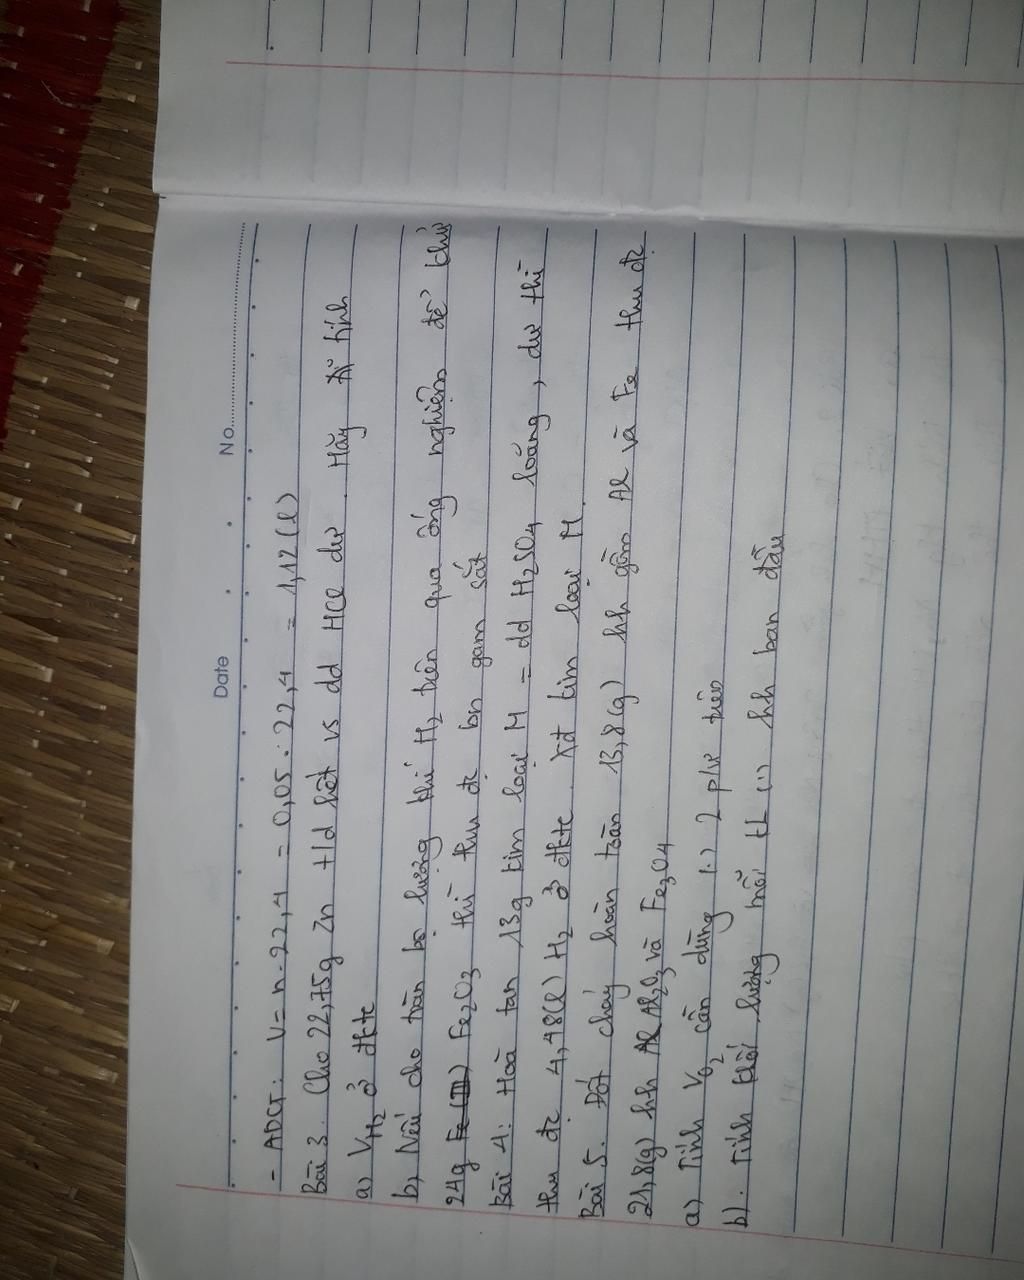 Date No.
- ADCT: V = n. 22,4 = 0,05. 22,4 = 1,12 (l)
Bài 3. Cho 22,75g Zn t/d hết vs dd HCl dư. Hãy tính
a) VH₂ ở đktc
b, Nếu cho toàn bộ lượng khí H₂ trên qua ống nghiệm để khử
24g Fe₂O₃ thì thu đc bn gam sắt
Bài 4: Hoà tan 13g kim loại M = dd H₂SO₄ loãng, dư thì
thu đc 4,48(l) H₂ ở đktc. Xđ kim loại M.
Bài 5. Đốt cháy hoàn toàn 13,8(g) hh gồm Al và Fe thu đc
21,8(g) hh Al₂O₃ và Fe₃O₄
a) Tính VO₂ cần dùng (.) 2 pư trên
b). Tính khối lượng mỗi KL (.) hh ban đầu